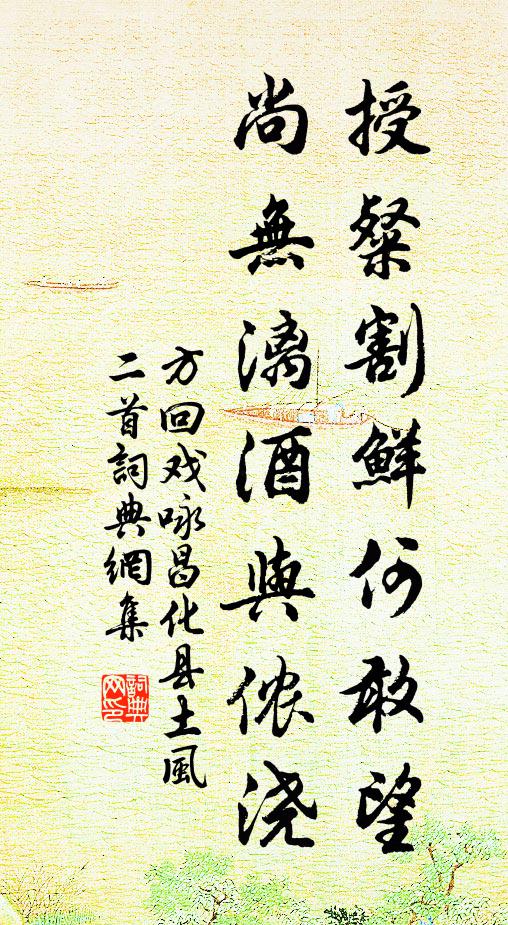 授粲割鮮何敢望
尚無漓酒與侬浇
方回戏咏昌化县土風
二首詞典網集
詞典
网印